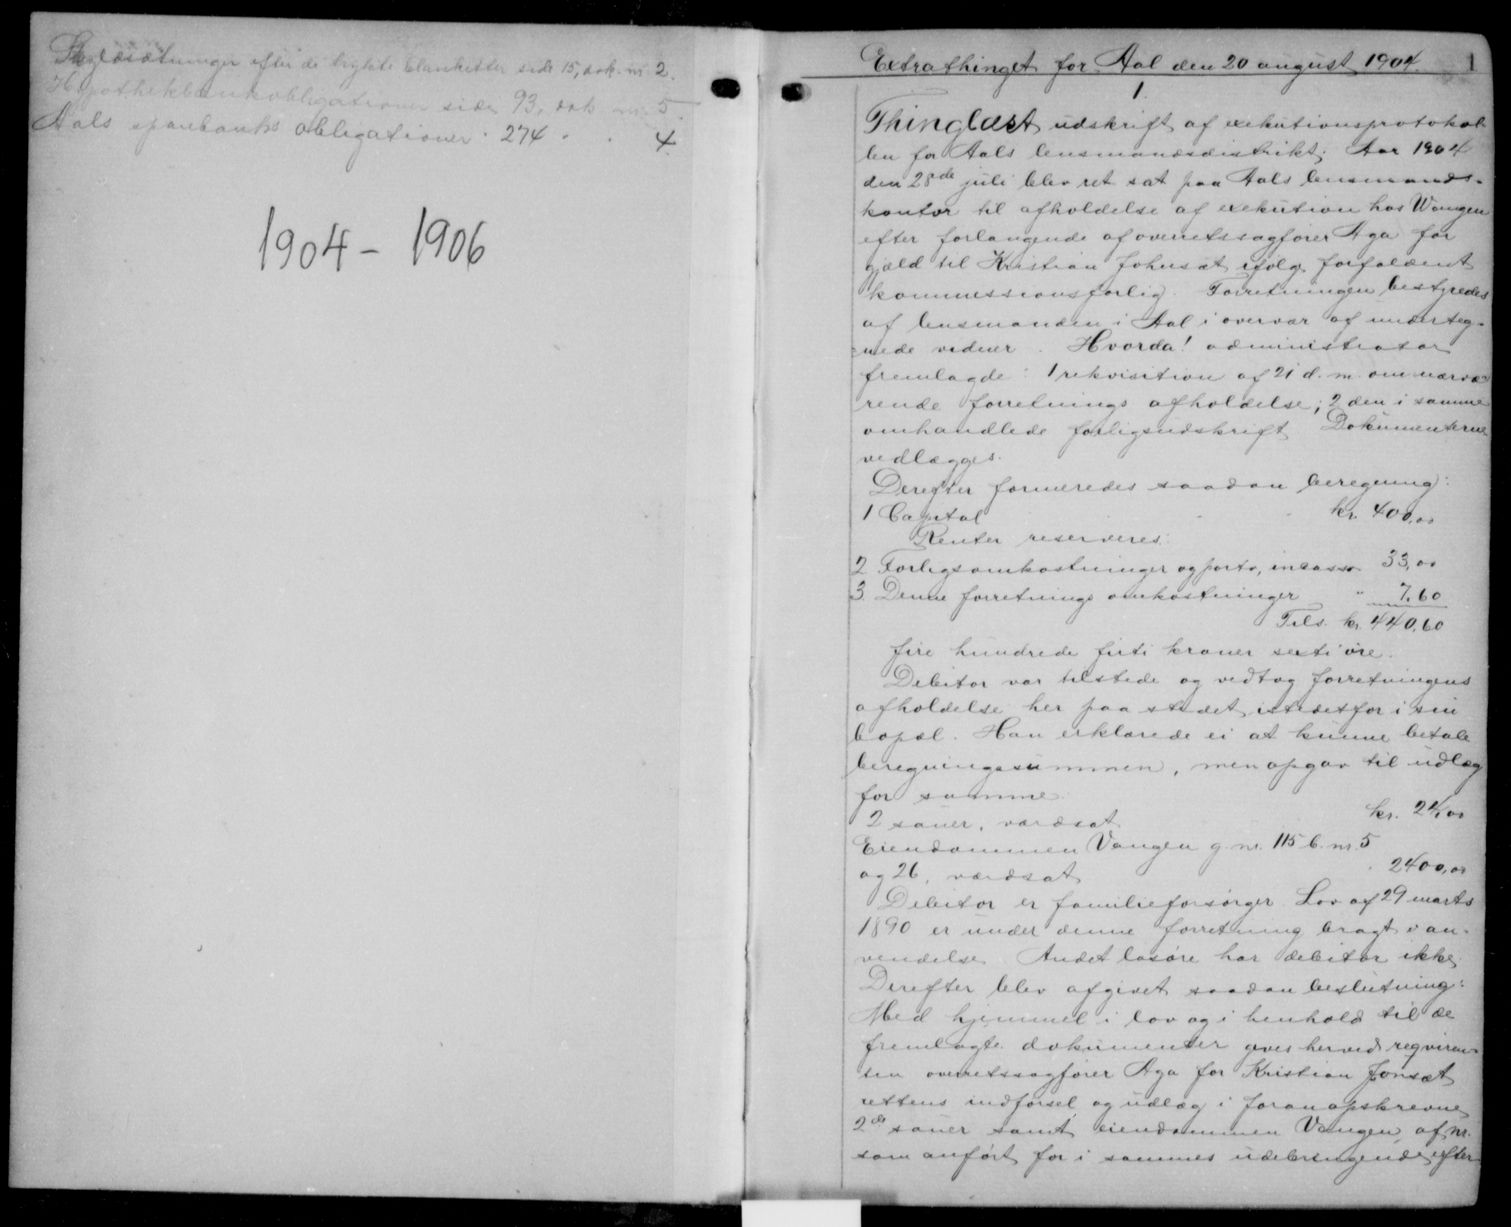 efter de trykte blanketter side 15, dok. nr. 2.
Hypothekbankobligationer side 93, dok nr. 5
Aals sparebanks obligationer " 274 " . 4.
1904 - 1906
Extrathinget for Aal den 20 august 1904. 1
1.
Thinglæst udskrift af exekutionsprotokol-
len for Aals lensmandsdistrikt: Aar 1904
den 28de juli blev ret sat paa Aals lensmands-
kontor til afholdelse af exekution hos Wangen
efter forlangende af overretssagfører Aga for
gjæld til Kristian Johnsæt ifølge forfaldent
kommissionsforlig. Forretningen bestyredes
af lensmanden i Aal i overvær af underteg-
nede vidner. Hvorda! administrator
fremlagde: 1 rekvisition af 21 d. m. om nærvæ-
rende forretnings afholdelse; 2 den i samme
omhandlede forligsudskrift Dokumenterne
vedlægges.
Derefter formeredes saadan beregning:
1 Capital kr. 400,00
Renter reserveres.
2 Forligsomkostninger og porto, incasso 33,00
3. Denne forretnings omkostninger " 7,60
Tils. kr. 440,60
fire hundrede firti kroner sexti øre.
Debitor var tilstede og vedtog forretningens
afholdelse her paa stedet istedetfor i sin
bopæl. Han erklærede ei at kunne betale
beregningssummen, men opgav til udlæg
for samme
2 sauer, værdsat kr. 24,00
Eiendommen Vangen g. nr. 115 b. nr. 5
og 26, værdsat 2400,00
Debitor er familieforsørger. Lov af 29 marts
1890 er under denne forretning bragt i an-
vendelse. Andet løsøre har debitor ikke.
Derefter blev afgivet saadan beslutning:
Med hjemmel i lov og i henhold til de
fremlagte dokumenter gives herved reqviren-
ten overretssagfører Aga for Kristian Jonsæt
rettens indførsel og udlæg i foranopskrevne
2de sauer samt eiendommen Vangen af nr.
som anført for i sammes udebringende efter